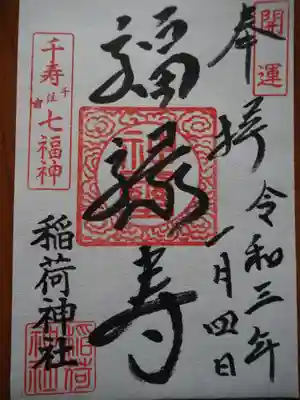 開運
奉拝
令和三年
一月四日
福禄寿
千寿
七福神
稲荷神社
稲荷
神社